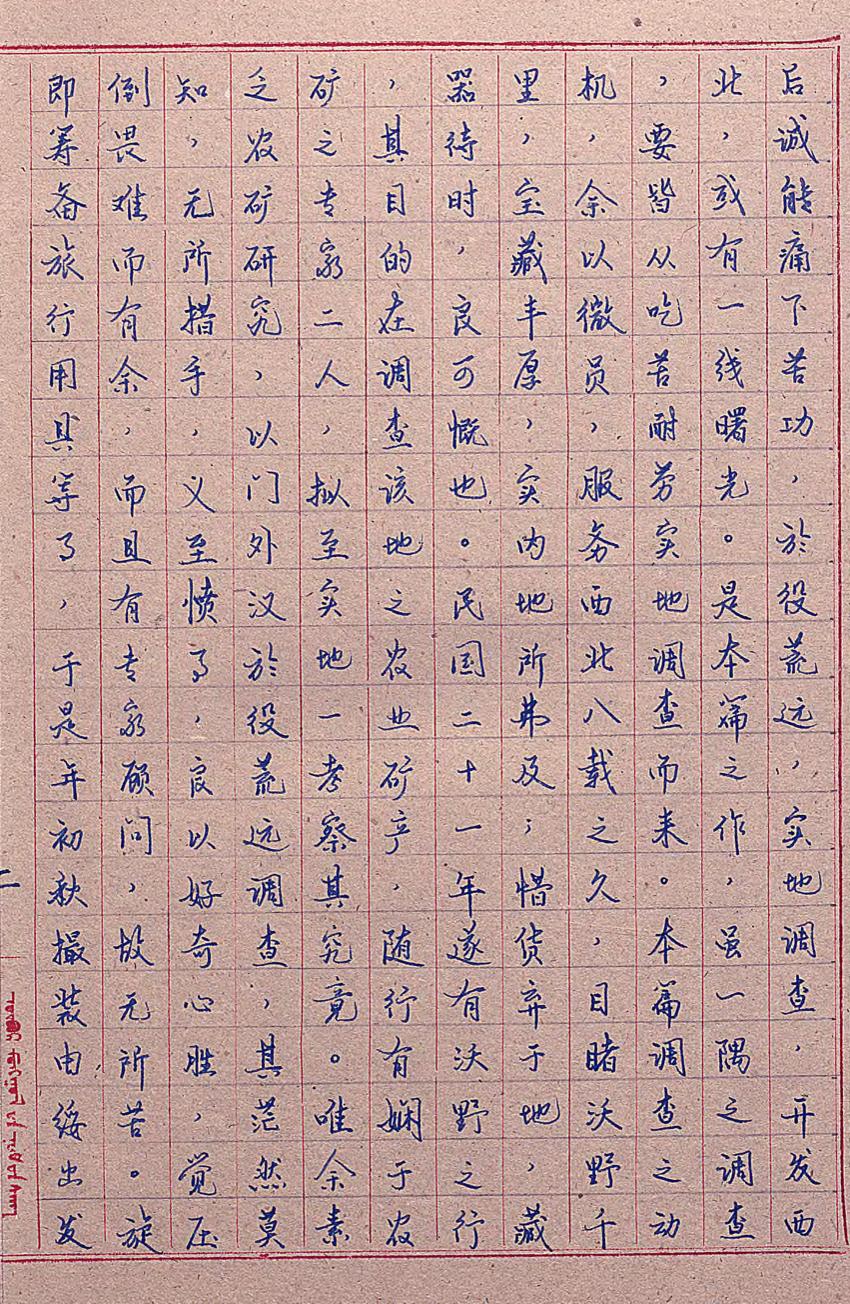 后诚能痛下苦功，於役荒远，实地调查，开发西
北，或有一线曙光。是本篇之作，虽一隅之调查
，要皆从吃苦耐劳实地调查而来。本篇调查之动
机，余以微员，服务西北八载之久，目睹沃野千
里，宝藏丰厚，实内地所弗及；惜货弃于地，藏
器待时，良可慨也。民国二十一年遂有沃野之行
，其目的在调查该地之农业矿产，随行有娴于农
矿之专家二人，拟至实地一考察其究竟。唯余素
乏农矿研究，以门外汉於役荒远调查，其茫然莫
知，无所措手，义至愤了，良以好奇心胜，觉压
倒畏难而有余，而且有专家顾问，故无所苦。旋
即筹备旅行用具等了，于是年初秋撮装由绥出发
二